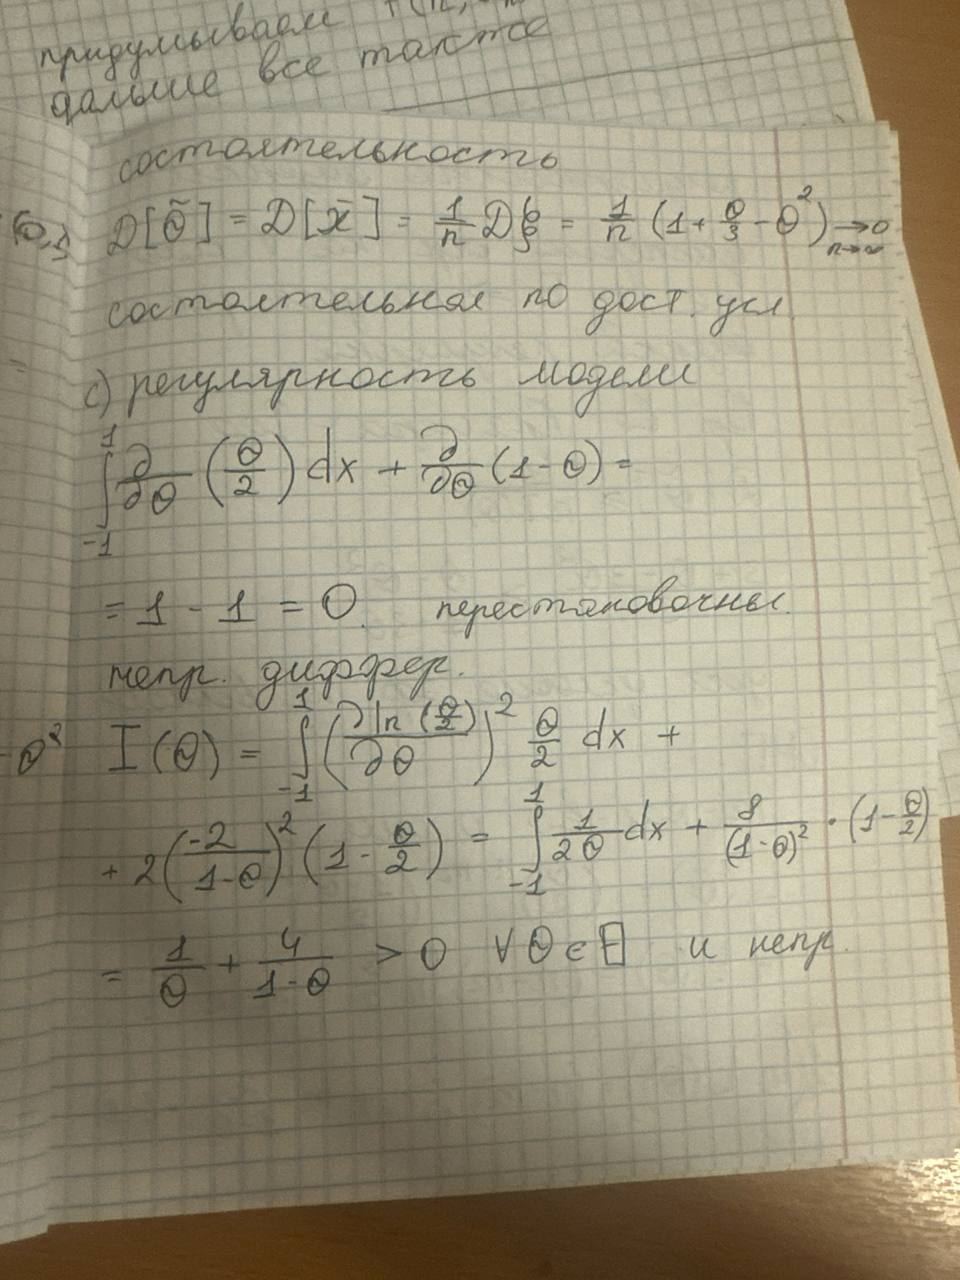 придумываем
дальше все также
состоятельность
D[θ̃] = D[x̄] = 1/n Dξ = 1/n (1 + θ/3 - θ²) → 0 n→∞
состоятельная по дост. усл
c) регулярность модели
∫₋₁¹ ∂/∂θ (θ/2) dx + ∂/∂θ (1 - θ) =
= 1 - 1 = 0. перестановочны.
непр. диффер.
- θ² I(θ) = ∫₋₁¹ (∂ln(θ/2)/∂θ)² θ/2 dx +
+ 2(-2/(1-θ))² (1 - θ/2) = ∫₋₁¹ 1/(2θ) dx + 8/(1-θ)² · (1 - θ/2)
= 1/θ + 4/(1-θ) > 0 ∀ θ ∈ Θ и непр.